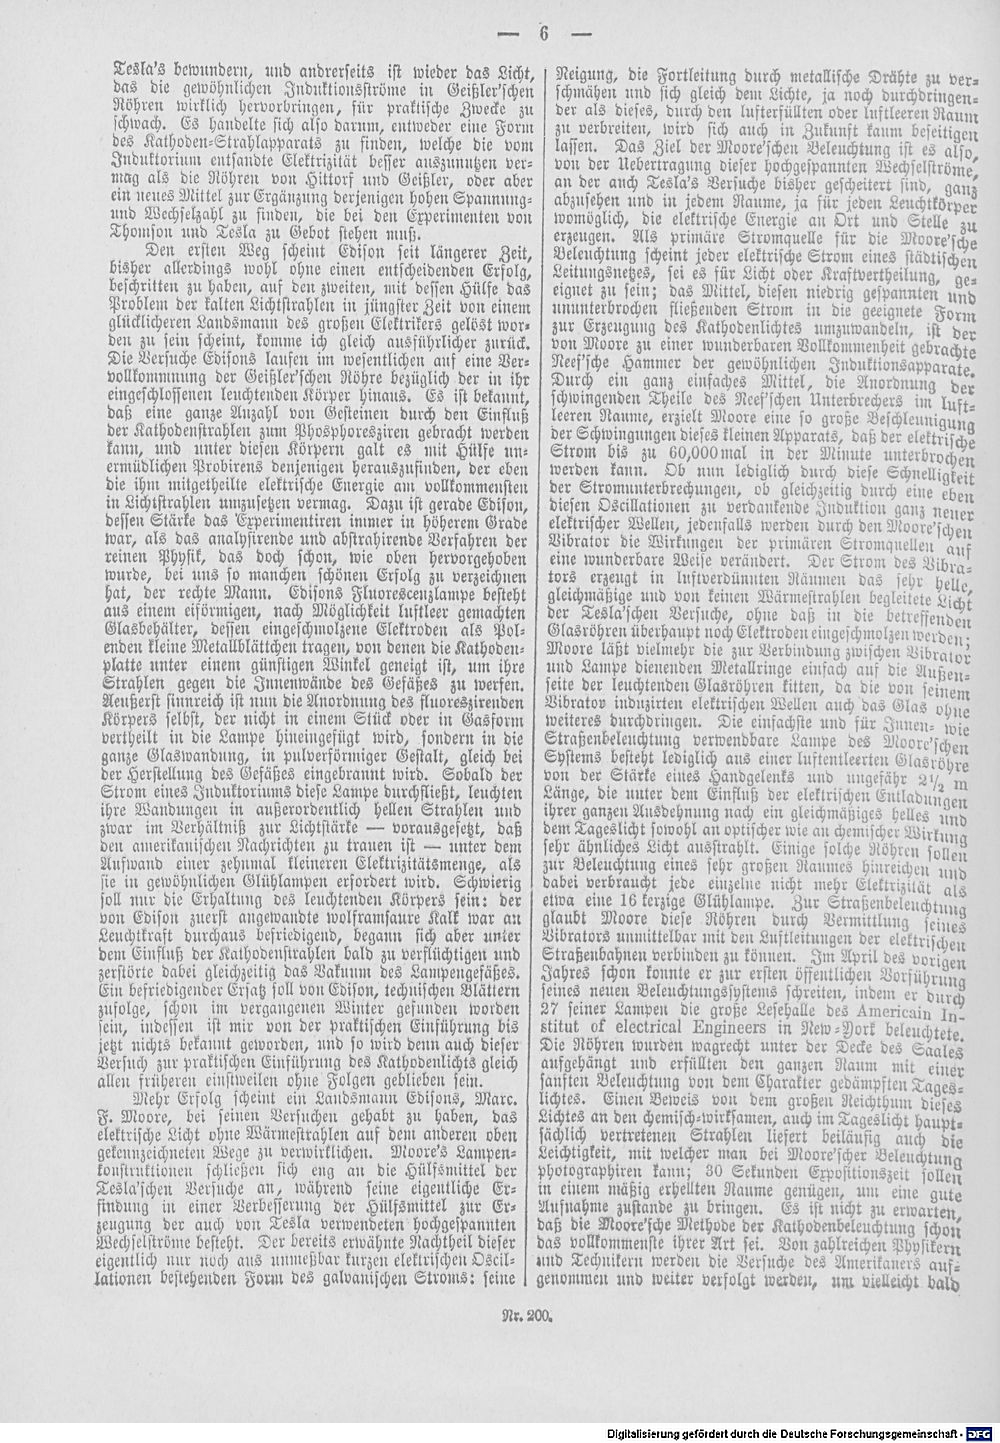 — 6 —
Tesla's bewundern, und andrerseits ist wieder das Licht,
das die gewöhnlichen Induktionsströme in Geißler'schen
Röhren wirklich hervorbringen, für praktische Zwecke zu
schwach. Es handelte sich also darum, entweder eine Form
des Kathoden-Strahlapparats zu finden, welche die vom
Induktorium entsandte Elektrizität besser auszunutzen ver-
mag als die Röhren von Hittorf und Geißler, oder aber
ein neues Mittel zur Ergänzung derjenigen hohen Spannung-
und Wechselzahl zu finden, die bei den Experimenten von
Thomson und Tesla zu Gebot stehen muß.
Den ersten Weg scheint Edison seit längerer Zeit,
bisher allerdings wohl ohne einen entscheidenden Erfolg,
beschritten zu haben, auf den zweiten, mit dessen Hülfe das
Problem der kalten Lichtstrahlen in jüngster Zeit von einem
glücklicheren Landsmann des großen Elektrikers gelöst wor-
den zu sein scheint, komme ich gleich ausführlicher zurück.
Die Versuche Edisons laufen im wesentlichen auf eine Ver-
vollkommnung der Geißler'schen Röhre bezüglich der in ihr
eingeschlossenen leuchtenden Körper hinaus. Es ist bekannt,
daß eine ganze Anzahl von Gesteinen durch den Einfluß
der Kathodenstrahlen zum Phosphoresziren gebracht werden
kann, und unter diesen Körpern galt es mit Hülfe un-
ermüdlichen Probirens denjenigen herauszufinden, der eben
die ihm mitgetheilte elektrische Energie am vollkommensten
in Lichtstrahlen umzusetzen vermag. Dazu ist gerade Edison,
dessen Stärke das Experimentiren immer in höherem Grade
war, als das analysirende und abstrahirende Verfahren der
reinen Physik, das doch schon, wie oben hervorgehoben
wurde, bei uns so manchen schönen Erfolg zu verzeichnen
hat, der rechte Mann. Edisons Fluorescenzlampe besteht
aus einem eiförmigen, nach Möglichkeit luftleer gemachten
Glasbehälter, dessen eingeschmolzene Elektroden als Pol-
enden kleine Metallblättchen tragen, von denen die Kathoden-
platte unter einem günstigen Winkel geneigt ist, um ihre
Strahlen gegen die Innenwände des Gefäßes zu werfen.
Aeußerst sinnreich ist nun die Anordnung des fluoreszirenden
Körpers selbst, der nicht in einem Stück oder in Gasform
vertheilt in die Lampe hineingefügt wird, sondern in die
ganze Glaswandung, in pulverförmiger Gestalt, gleich bei
der Herstellung des Gefäßes eingebrannt wird. Sobald der
Strom eines Induktoriums diese Lampe durchfließt, leuchten
ihre Wandungen in außerordentlich hellen Strahlen und
zwar im Verhältniß zur Lichtstärke — vorausgesetzt, daß
den amerikanischen Nachrichten zu trauen ist — unter dem
Aufwand einer zehnmal kleineren Elektrizitätsmenge, als
sie in gewöhnlichen Glühlampen erfordert wird. Schwierig
soll nur die Erhaltung des leuchtenden Körpers sein: der
von Edison zuerst angewandte wolframsaure Kalk war an
Leuchtkraft durchaus befriedigend, begann sich aber unter
dem Einfluß der Kathodenstrahlen bald zu verflüchtigen und
zerstörte dabei gleichzeitig das Vakuum des Lampengefäßes.
Ein befriedigender Ersatz soll von Edison, technischen Blättern
zufolge, schon im vergangenen Winter gefunden worden
sein, indessen ist mir von der praktischen Einführung bis
jetzt nichts bekannt geworden, und so wird denn auch dieser
Versuch zur praktischen Einführung des Kathodenlichts gleich
allen früheren einstweilen ohne Folgen geblieben sein.
Mehr Erfolg scheint ein Landsmann Edisons, Marc.
F. Moore, bei seinen Versuchen gehabt zu haben, das
elektrische Licht ohne Wärmestrahlen auf dem anderen oben
gekennzeichneten Wege zu verwirklichen. Moore's Lampen-
konstruktionen schließen sich eng an die Hülfsmittel der
Tesla'schen Versuche an, während seine eigentliche Er-
findung in einer Verbesserung der Hülfsmittel zur Er-
zeugung der auch von Tesla verwendeten hochgespannten
Wechselströme besteht. Der bereits erwähnte Nachtheil dieser
eigentlich nur noch aus unmeßbar kurzen elektrischen Oscil-
lationen bestehenden Form des galvanischen Stroms: seine
Neigung, die Fortleitung durch metallische Drähte zu ver-
schmähen und sich gleich dem Lichte, ja noch durchdringen-
der als dieses, durch den lufterfüllten oder luftleeren Raum
zu verbreiten, wird sich auch in Zukunft kaum beseitigen
lassen. Das Ziel der Moore'schen Beleuchtung ist es also,
von der Uebertragung dieser hochgespannten Wechselströme,
an der auch Tesla's Versuche bisher gescheitert sind, ganz
abzusehen und in jedem Raume, ja für jeden Leuchtkörper
womöglich, die elektrische Energie an Ort und Stelle zu
erzeugen. Als primäre Stromquelle für die Moore'sche
Beleuchtung scheint jeder elektrische Strom eines städtischen
Leitungsnetzes, sei es für Licht oder Kraftvertheilung, ge-
eignet zu sein; das Mittel, diesen niedrig gespannten und
ununterbrochen fließenden Strom in die geeignete Form
zur Erzeugung des Kathodenlichtes umzuwandeln, ist der
von Moore zu einer wunderbaren Vollkommenheit gebrachte
Neef'sche Hammer der gewöhnlichen Induktionsapparate.
Durch ein ganz einfaches Mittel, die Anordnung der
schwingenden Theile des Neef'schen Unterbrechers im luft-
leeren Raume, erzielt Moore eine so große Beschleunigung
der Schwingungen dieses kleinen Apparats, daß der elektrische
Strom bis zu 60,000 mal in der Minute unterbrochen
werden kann. Ob nun lediglich durch diese Schnelligkeit
der Stromunterbrechungen, ob gleichzeitig durch eine eben
diesen Oscillationen zu verdankende Induktion ganz neuer
elektrischer Wellen, jedenfalls werden durch den Moore'schen
Vibrator die Wirkungen der primären Stromquellen auf
eine wunderbare Weise verändert. Der Strom des Vibra-
tors erzeugt in luftverdünnten Räumen das sehr helle,
gleichmäßige und von keinen Wärmestrahlen begleitete Licht
der Tesla'schen Versuche, ohne daß in die betreffenden
Glasröhren überhaupt noch Elektroden eingeschmolzen werden;
Moore läßt vielmehr die zur Verbindung zwischen Vibrator
und Lampe dienenden Metallringe einfach auf die Außen-
seite der leuchtenden Glasröhren kitten, da die von seinem
Vibrator induzirten elektrischen Wellen auch das Glas ohne
weiteres durchdringen. Die einfachste und für Innen- wie
Straßenbeleuchtung verwendbare Lampe des Moore'schen
Systems besteht lediglich aus einer luftentleerten Glasröhre
von der Stärke eines Handgelenks und ungefähr 2½ m
Länge, die unter dem Einfluß der elektrischen Entladungen
ihrer ganzen Ausdehnung nach ein gleichmäßiges helles und
dem Tageslicht sowohl an optischer wie an chemischer Wirkung
sehr ähnliches Licht ausstrahlt. Einige solche Röhren sollen
zur Beleuchtung eines sehr großen Raumes hinreichen und
dabei verbraucht jede einzelne nicht mehr Elektrizität als
etwa eine 16 kerzige Glühlampe. Zur Straßenbeleuchtung
glaubt Moore diese Röhren durch Vermittlung seines
Vibrators unmittelbar mit den Luftleitungen der elektrischen
Straßenbahnen verbinden zu können. Im April des vorigen
Jahres schon konnte er zur ersten öffentlichen Vorführung
seines neuen Beleuchtungssystems schreiten, indem er durch
27 seiner Lampen die große Lesehalle des Americain In-
stitut of electrical Engineers in New-York beleuchtete.
Die Röhren wurden wagrecht unter der Decke des Saales
aufgehängt und erfüllten den ganzen Raum mit einer
sanften Beleuchtung von dem Charakter gedämpften Tages-
lichtes. Einen Beweis von dem großen Reichthum dieses
Lichtes an den chemisch-wirksamen, auch im Tageslicht haupt-
sächlich vertretenen Strahlen liefert beiläufig auch die
Leichtigkeit, mit welcher man bei Moore'scher Beleuchtung
photographiren kann; 30 Sekunden Expositionszeit sollen
in einem mäßig erhellten Raume genügen, um eine gute
Aufnahme zustande zu bringen. Es ist nicht zu erwarten,
daß die Moore'sche Methode der Kathodenbeleuchtung schon
das vollkommenste ihrer Art sei. Von zahlreichen Physikern
und Technikern werden die Versuche des Amerikaners auf-
genommen und weiter verfolgt werden, um vielleicht bald
Nr. 200.
Digitalisierung gefördert durch die Deutsche Forschungsgemeinschaft - DFG